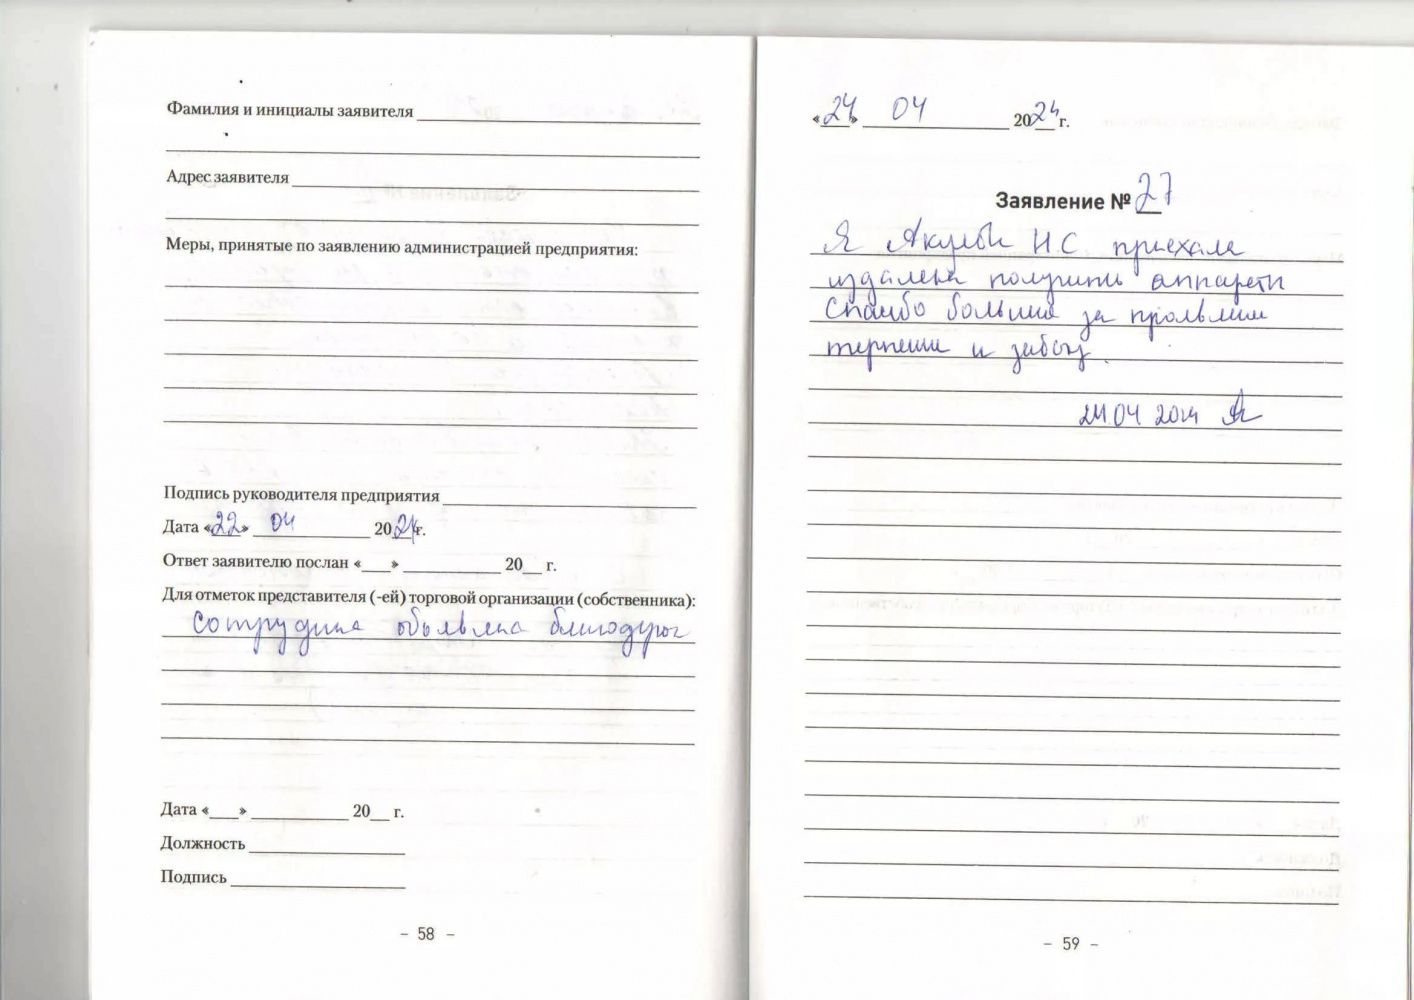 Фамилия и инициалы заявителя
Адрес заявителя
Меры, принятые по заявлению администрацией предприятия:
Подпись руководителя предприятия
Дата «22» 04 2024 г.
Ответ заявителю послан «___» ___ 20__ г.
Для отметок представителя (-ей) торговой организации (собственника):
Сотрудника объявлена
Дата «___» ___ 20__ г.
Должность
Подпись
- 58 -
«24» 04 2024 г.
Заявление № 27
Я НС приехала
издалека получить аппараты
Спасибо большое за
терпение и заботу.
24.04 2024
- 59 -